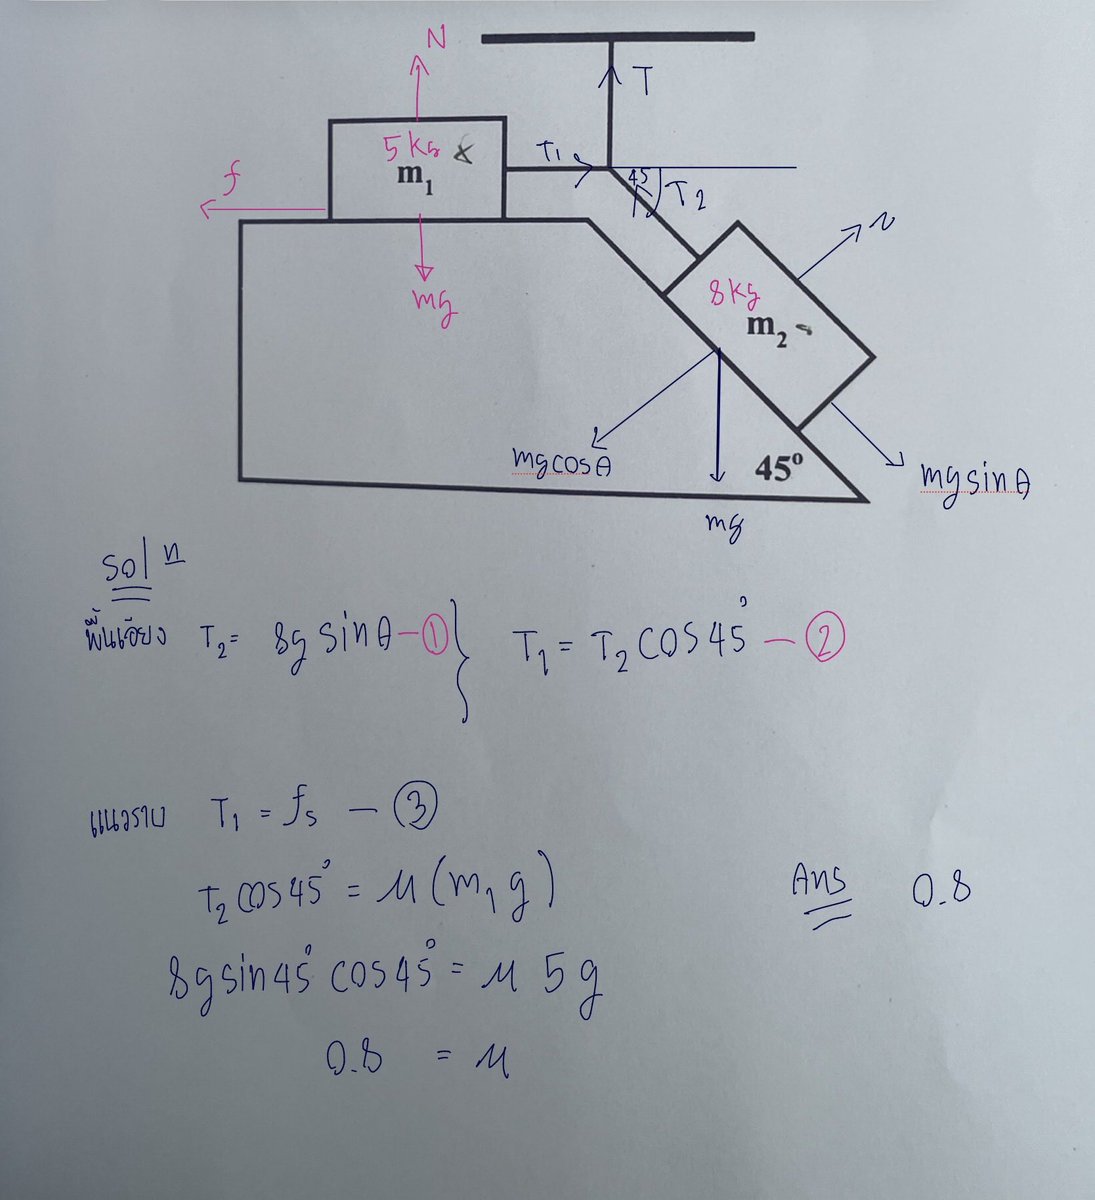 N
T
5 kg
m₁
T₁
f
45
T₂
N
mg
8 kg
m₂
mg cos θ
45°
mg sin θ
mg
Solⁿ
พื้นเอียง T₂ = 8g sin θ - ① } T₁ = T₂ cos 45° - ②
แนวราบ T₁ = fₛ - ③
T₂ cos 45° = μ (m₁ g)
Ans 0.8
8g sin 45° cos 45° = μ 5 g
0.8 = μ